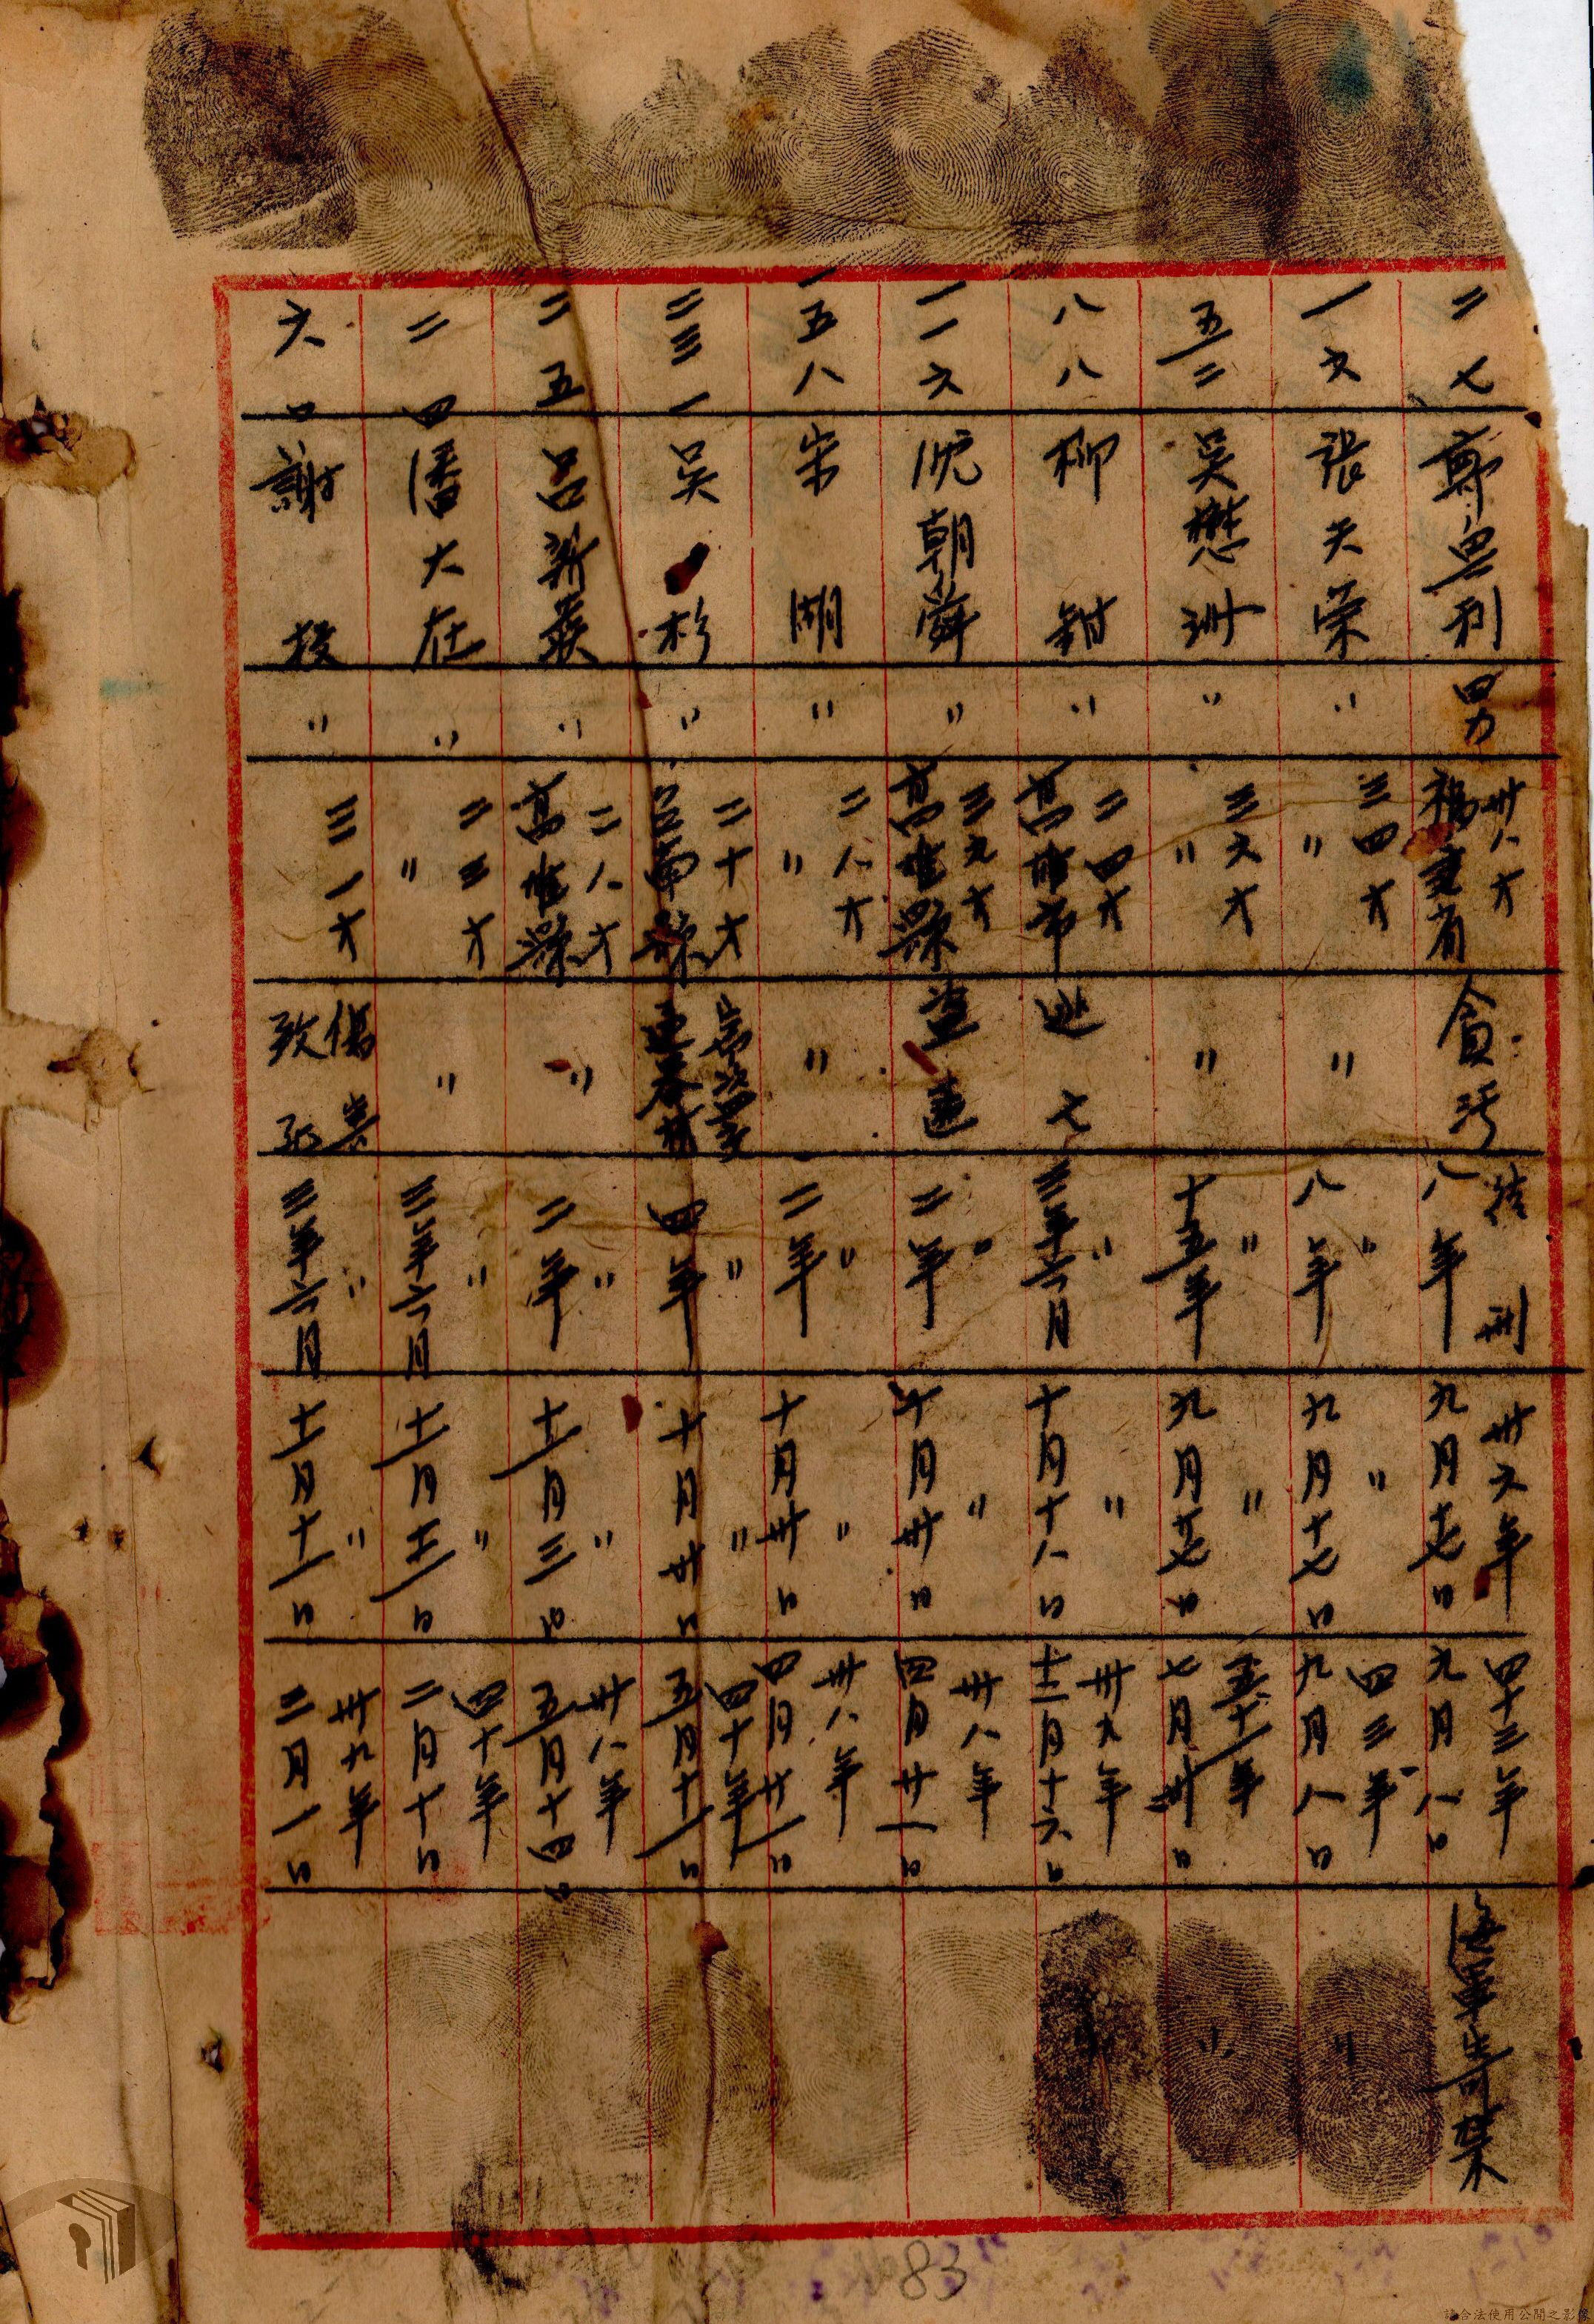 二七 鄭 利 男 卅八才 福建省 貪污 徒刑 八年 卅六年 九月十七日 四十三年 九月八日 海軍寄禁
一六 張天榮 〃 三四才 〃 〃 〃 八年 〃 九月十七日 四三年 九月八日 〃
五二 吳懋洲 〃 三六才 〃 〃 〃 十五年 〃 九月 日 五十一年 七月卅日 〃
八八 柳 鉗 〃 二四才 高雄市 逃亡 〃 三年六月 〃 十月十八日 卅九年 十二月十六日 〃
一一六 沈朝舜 〃 三九才 高雄縣 盜 〃 二年 〃 十月卅日 卅八年 四月廿一日
一五八 宋 湖 〃 二八才 〃 〃 〃 二年 〃 十月卅日 卅八年 四月廿一日
二三一 吳 杉 〃 二十才 台南縣 〃 四年 〃 十月卅日 四十年 五月十一日
二五 呂新 〃 二八才 高雄縣 〃 〃 二年 〃 十一月三日 卅八年 五月十四日
二四 潘大在 〃 二三才 〃 〃 〃 三年六月 〃 十一月十二日 四十年 二月十日
六 謝 投 〃 三一才 傷害致死 〃 三年六月 〃 十一月十一日 卅九年 三月一日
83
請合法使用公開之影像